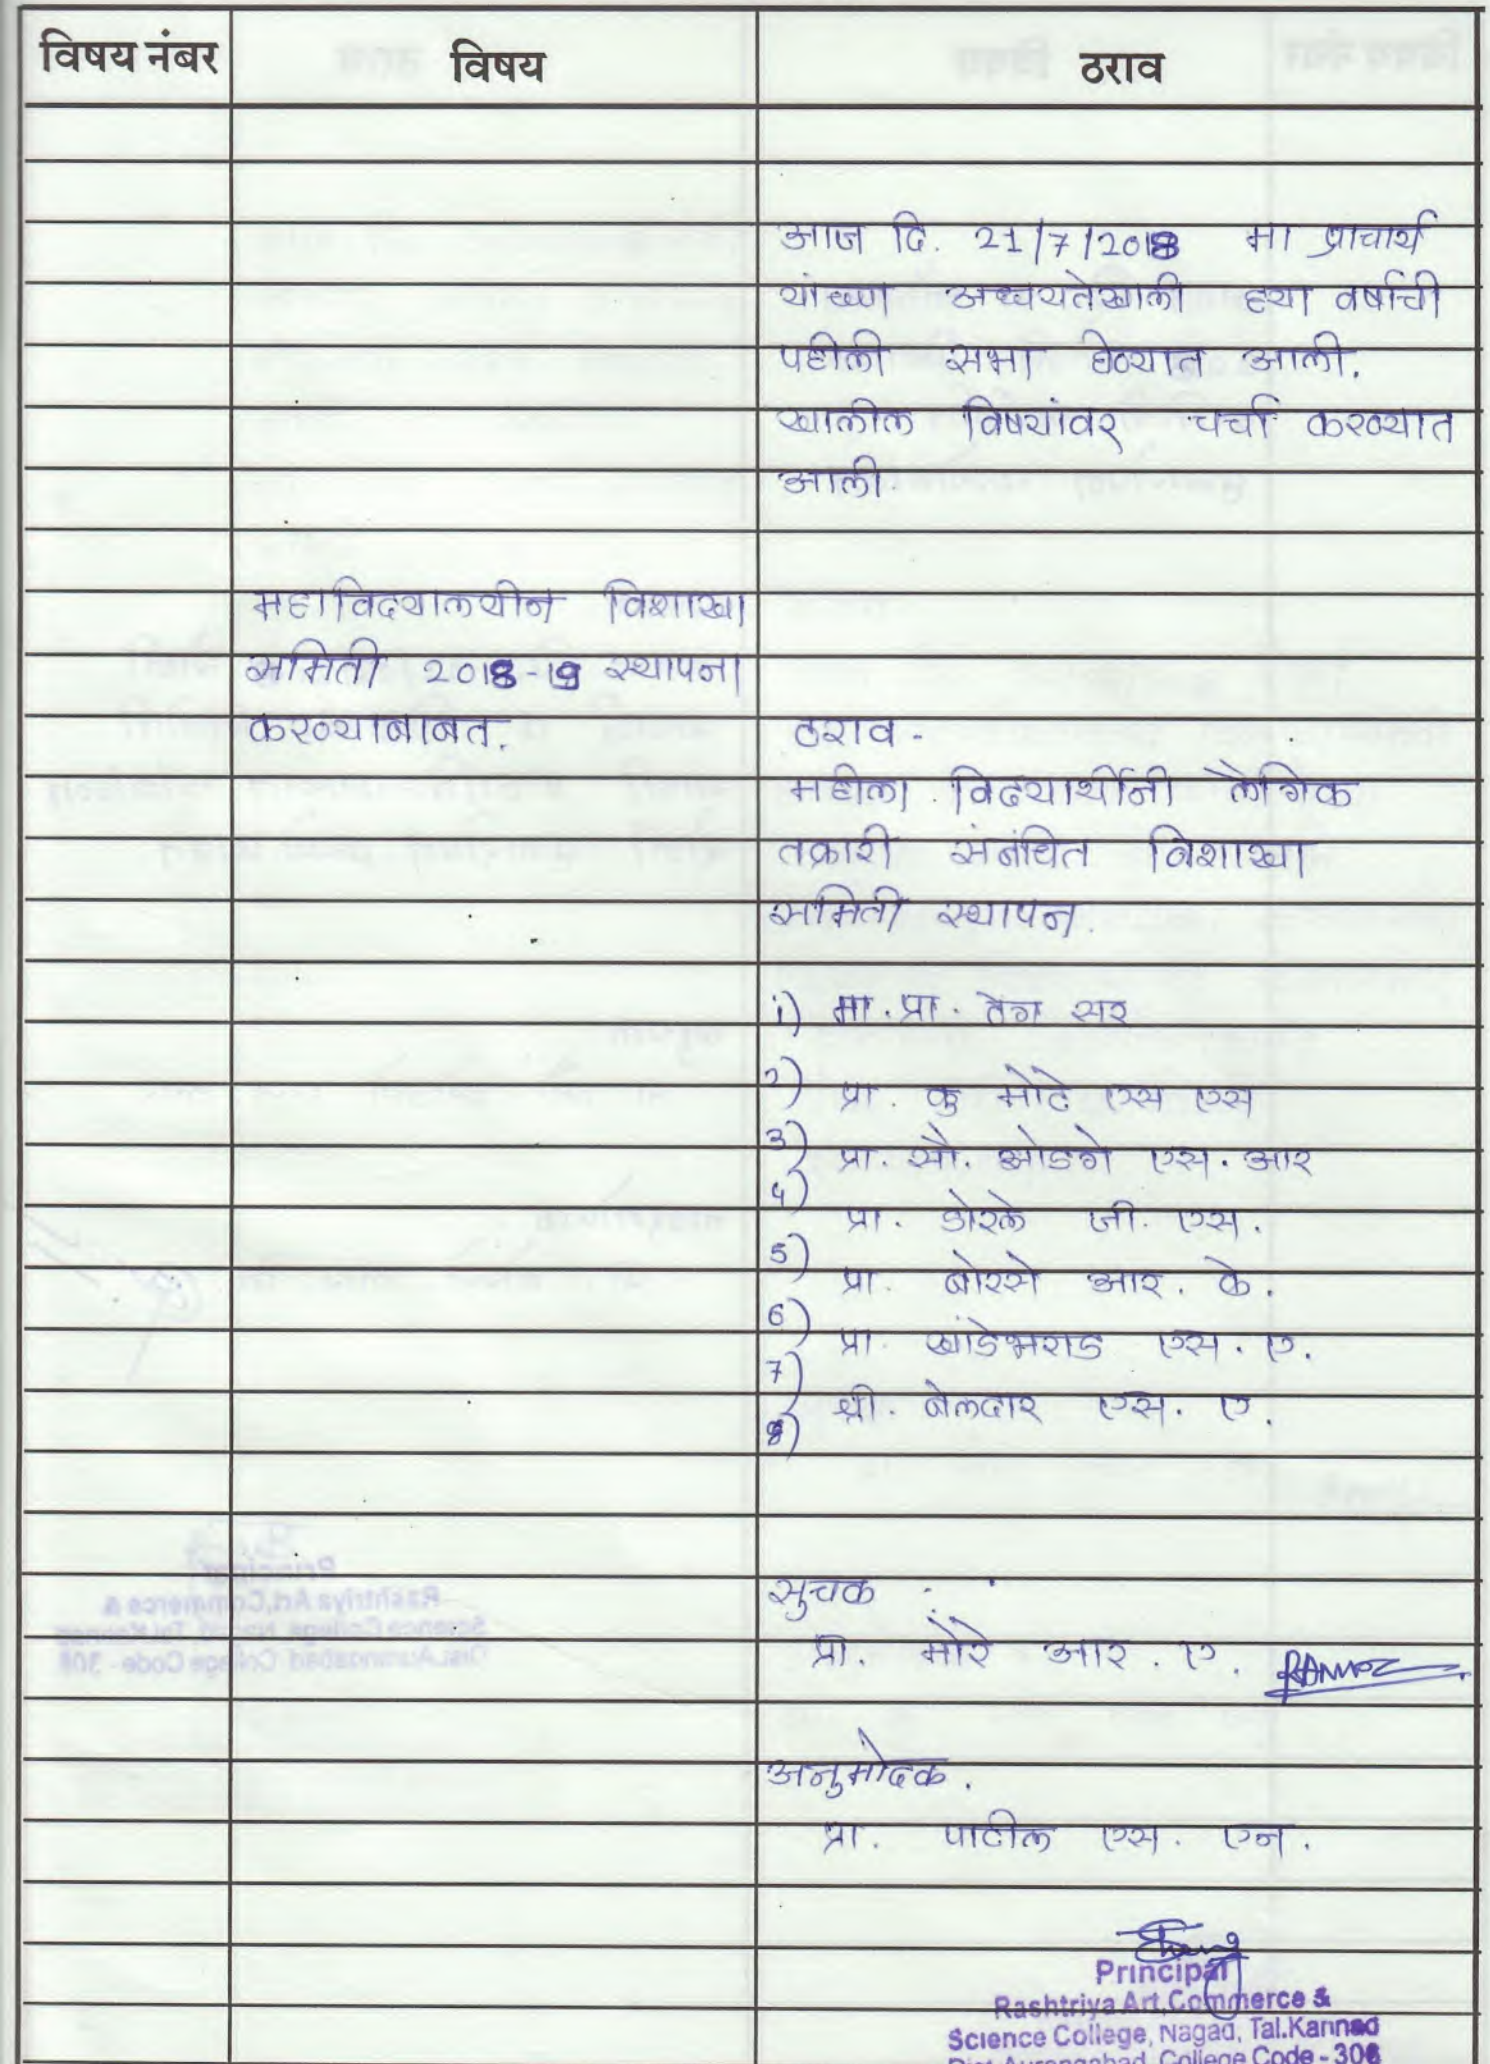 विषय नंबर विषय ठराव
आज दि. 21/7/2018 मा प्राचार्य
यांच्या अध्ययतेखाली ह्या वर्षाची
पहीली सभा घेण्यात आली.
खालील विषयांवर चर्चा करण्यात
आली.
महाविदयालयीन विशाखा
समिती 2018-19 स्थापना
करण्याबाबत.
ठराव -
महीला विदयार्थीनी लैगिक
तक्रारी संबंधित विशाखा
समिती स्थापन.
1) मा. प्रा. तेग सर
2) प्रा. कु मोटे एस एस
3) प्रा. सौ. ओडगे एस. आर
4) प्रा. डोरले जी. एस.
5) प्रा. बोरसे आर. के.
6) प्रा. खांडेभराड एस. ए.
7) श्री. बेलदार एस. ए.
8)
सुचक :
प्रा. मोरे आर. ए.
अनुमोदक.
प्रा. पाटील एस. एन.
Principal
Rashtriya Art,Commerce &
Science College, Nagad, Tal.Kannad
Dist.Aurangabad, College Code - 306